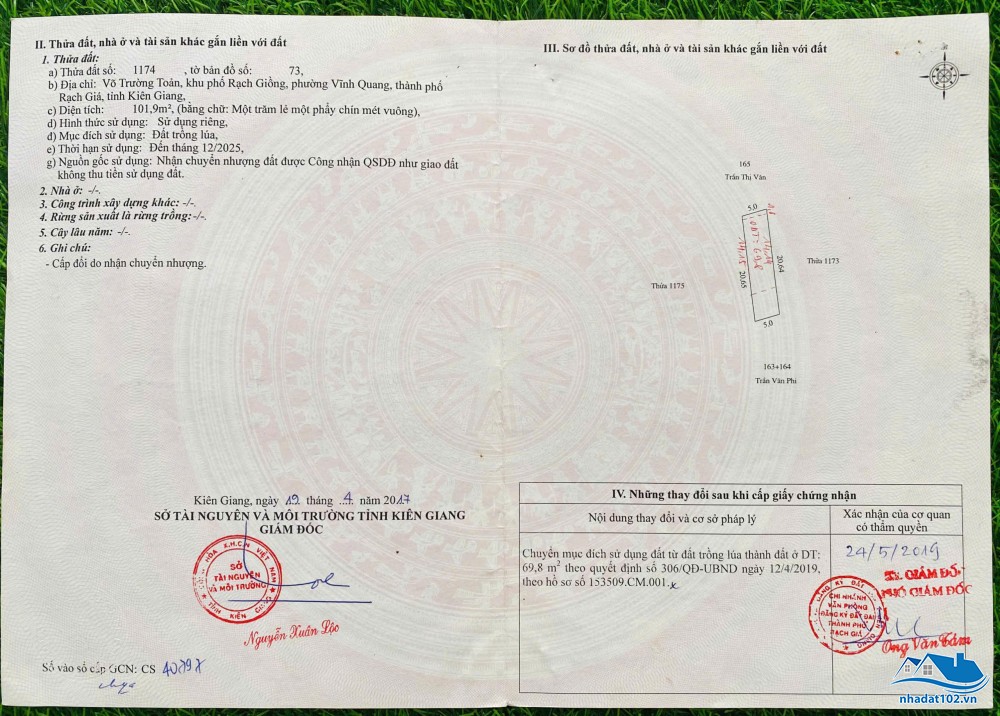 II. Thửa đất, nhà ở và tài sản khác gắn liền với đất
1. Thửa đất:
a) Thửa đất số: 1174 , tờ bản đồ số: 73,
b) Địa chỉ: Võ Trường Toản, khu phố Rạch Giồng, phường Vĩnh Quang, thành phố
Rạch Giá, tỉnh Kiên Giang,
c) Diện tích: 101,9m², (bằng chữ: Một trăm lẻ một phẩy chín mét vuông),
d) Hình thức sử dụng: Sử dụng riêng,
đ) Mục đích sử dụng: Đất trồng lúa,
e) Thời hạn sử dụng: Đến tháng 12/2025,
g) Nguồn gốc sử dụng: Nhận chuyển nhượng đất được Công nhận QSDĐ như giao đất
không thu tiền sử dụng đất.
2. Nhà ở: -/-.
3. Công trình xây dựng khác: -/-.
4. Rừng sản xuất là rừng trồng:-/-.
5. Cây lâu năm: -/-.
6. Ghi chú:
- Cấp đổi do nhận chuyển nhượng.
Kiên Giang, ngày 19 tháng 4 năm 2017
SỞ TÀI NGUYÊN VÀ MÔI TRƯỜNG TỈNH KIÊN GIANG
GIÁM ĐỐC
SỞ
TÀI NGUYÊN
VÀ MÔI TRƯỜNG
TỈNH KIÊN GIANG
Nguyễn Xuân Lộc
Số vào sổ cấp GCN: CS
III. Sơ đồ thửa đất, nhà ở và tài sản khác gắn liền với đất
165
Trần Thị Vân
5.0
20.64
20.65
5.0
Thửa 1173
Thửa 1175
163+164
Trần Văn Phi
IV. Những thay đổi sau khi cấp giấy chứng nhận
Nội dung thay đổi và cơ sở pháp lý
Xác nhận của cơ quan
có thẩm quyền
Chuyển mục đích sử dụng đất từ đất trồng lúa thành đất ở DT:
69,8 m² theo quyết định số 306/QĐ-UBND ngày 12/4/2019,
theo hồ sơ số 153509.CM.001.
24/5/2019
CHI NHÁNH
VĂN PHÒNG
ĐĂNG KÝ ĐẤT ĐAI
THÀNH PHỐ
RẠCH GIÁ
GIÁM ĐỐC
PHÓ GIÁM ĐỐC
Ong Văn Tám
nhadat102.vn